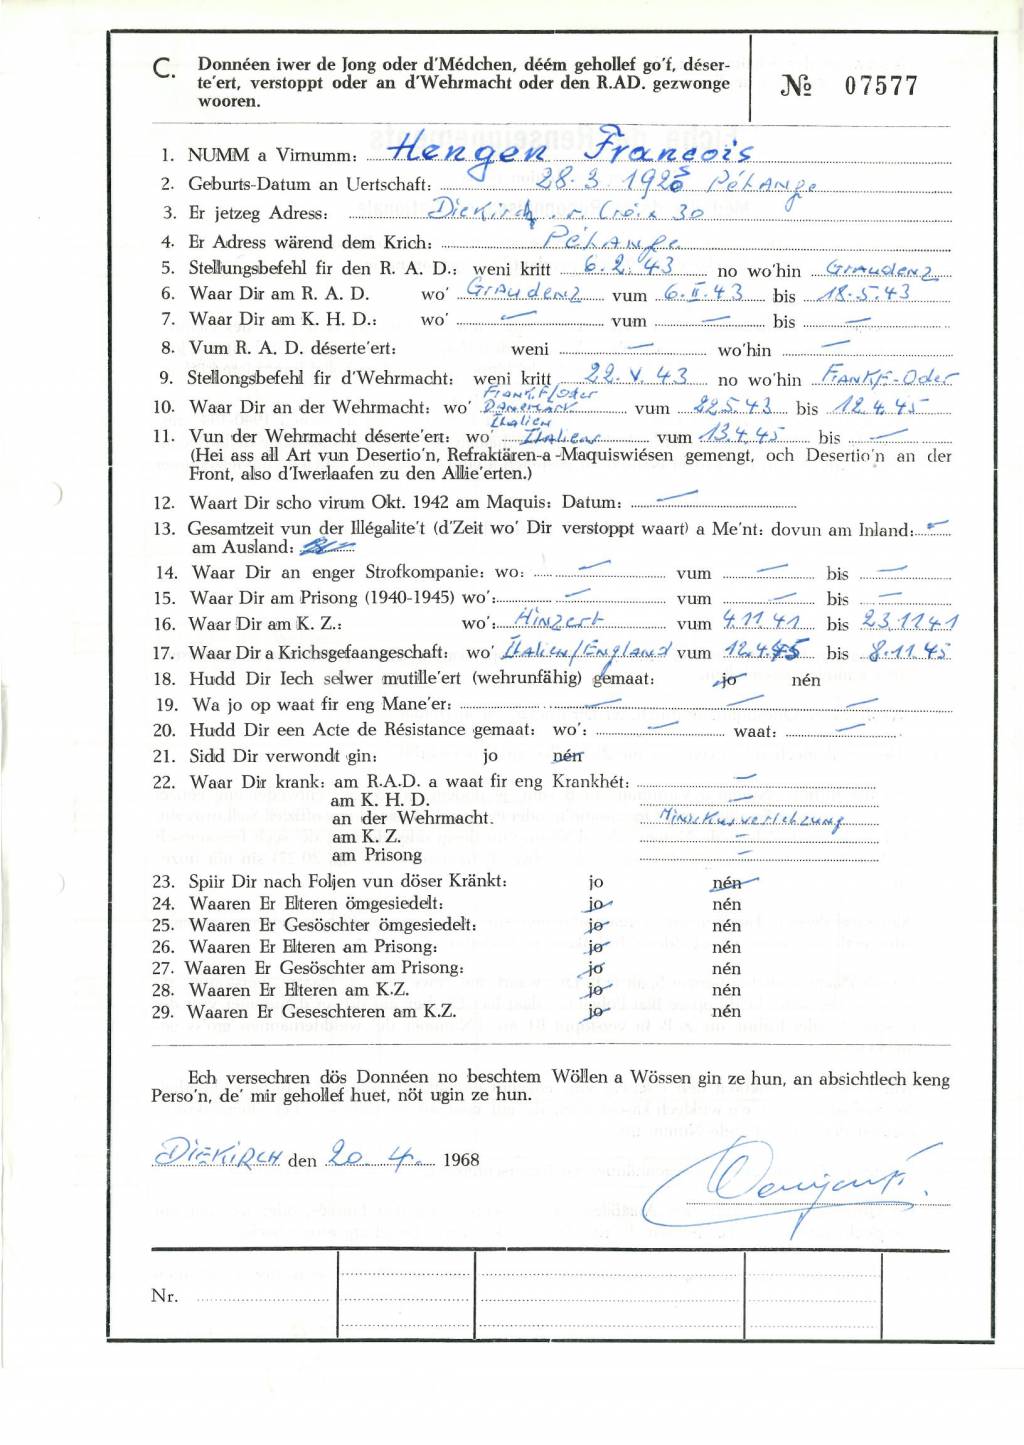 C. Donnéen iwer de Jong oder d'Médchen, déém gehollef go'f, déser-
te'ert, verstoppt oder an d'Wehrmacht oder den R.AD. gezwonge
wooren.
№ 07577
1. NUMM a Virnumm: Hengen Francois
2. Geburts-Datum an Uertschaft: 28.3.1926 Pétange
3. Er jetzeg Adress: Diekirch. r. Croix 30
4. Er Adress wärend dem Krich: Pétange
5. Stellungsbefehl fir den R. A. D.: weni kritt 6.2.43 no wo'hin Graudenz
6. Waar Dir am R. A. D. wo' Graudenz vum 6.II.43 bis 18.5.43
7. Waar Dir am K. H. D.: wo' — vum — bis —
8. Vum R. A. D. déserte'ert: weni — wo'hin —
9. Stellongsbefehl fir d'Wehrmacht: weni kritt 22.V.43 no wo'hin Frankf-Oder
Frankf/Oder
10. Waar Dir an der Wehrmacht: wo' Dänemark vum 22.5.43 bis 12.4.45
Italien
11. Vun der Wehrmacht déserte'ert: wo' Italien vum 13.4.45 bis —
(Hei ass all Art vun Desertio'n, Refraktären-a -Maquiswiésen gemengt, och Desertio'n an der
Front, also d'Iwerlaafen zu den Allie'erten.)
12. Waart Dir scho virum Okt. 1942 am Maquis: Datum: —
13. Gesamtzeit vun der Illégalite't (d'Zeit wo' Dir verstoppt waart) a Me'nt: dovun am Inland: —
am Ausland:
14. Waar Dir an enger Strofkompanie: wo: — vum — bis —
15. Waar Dir am Prisong (1940-1945) wo': — vum — bis —
16. Waar Dir am K. Z.: wo': Hinzert vum 4.11.41 bis 23.11.41
17. Waar Dir a Krichsgefaangeschaft: wo' Italien/England vum 12.4.45 bis 8.11.45
18. Hudd Dir Iech selwer mutille'ert (wehrunfähig) gemaat: jo nén
19. Wa jo op waat fir eng Mane'er: — — —
20. Hudd Dir een Acte de Résistance gemaat: wo': — waat: —
21. Sidd Dir verwondt gin: jo nén
22. Waar Dir krank: am R.A.D. a waat fir eng Krankhét: —
am K. H. D. —
an der Wehrmacht. Miniskusverletzung
am K. Z. —
am Prisong —
23. Spiir Dir nach Foljen vun döser Kränkt: jo nén
24. Waaren Er Elteren ömgesiedelt: jo nén
25. Waaren Er Gesöschter ömgesiedelt: jo nén
26. Waaren Er Elteren am Prisong: jo nén
27. Waaren Er Gesöschter am Prisong: jo nén
28. Waaren Er Elteren am K.Z. jo nén
29. Waaren Er Geseschteren am K.Z. jo nén
Ech versechren dös Donnéen no beschtem Wöllen a Wössen gin ze hun, an absichtlech keng
Perso'n, de' mir gehollef huet, nöt ugin ze hun.
DIEKIRCH den 20. 4. 1968
Nr.